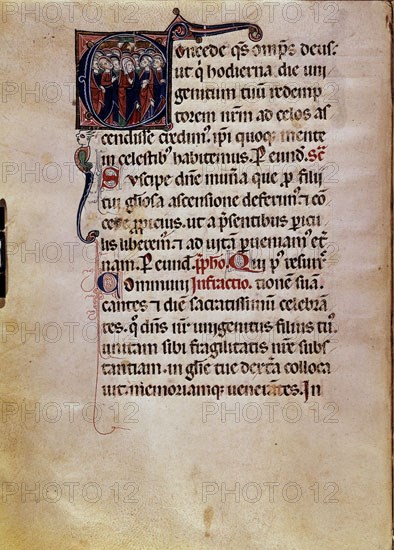 Concede qs omps deus.
ut q hodierna die uni
genitum tuū redemp
torem nrm ad celos as
cendisse credimꝰ. ipi quoqꝫ mente
in celestibꝰ habitemus. P eund. Sec̄
Suscipe dn̄e mun̄a que p̱ filii
tui gl̄iosa ascensione deferimꝰ. ⁊ con
cede ꝓpicius. ut a p̄sentibus picu
lis liberem̄. ⁊ ad uitā pueniam̄ et̄
nam. P eund. Pph̄o. Qui pꝰ resurre
Communi Infractio. tionē suā.
cantes ⁊ diē sacratissimū celebrā
tes. q̇ dn̄s n̄r unigenitus filius tuꝰ.
unitam sibi fragilitatis n̄re subs
tantiam. in gl̄ie tue dext̄a colloca
uit. memoriamqꝫ uenerātes. In
PHOTO 12